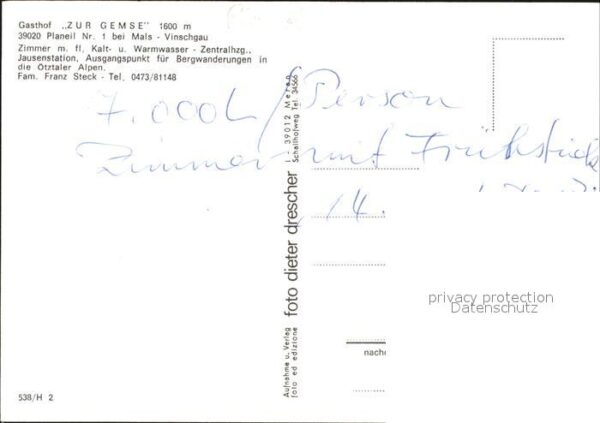 Gasthof „ZUR GEMSE" 1600 m
39020 Planeil Nr. 1 bei Mals - Vinschgau
Zimmer m. fl. Kalt- u. Warmwasser - Zentralhzg.,
Jausenstation, Ausgangspunkt für Bergwanderungen in
die Ötztaler Alpen.
Fam. Franz Steck - Tel. 0473/81148
7.000L/Person
Zimmer mit Frühstück
14.
Aufnahme u. Verlag
foto ed edizione
foto dieter drescher
I - 39012 Meran
Schallhofweg Tel. 34566
privacy protection
Datenschutz
nachd
538/H 2